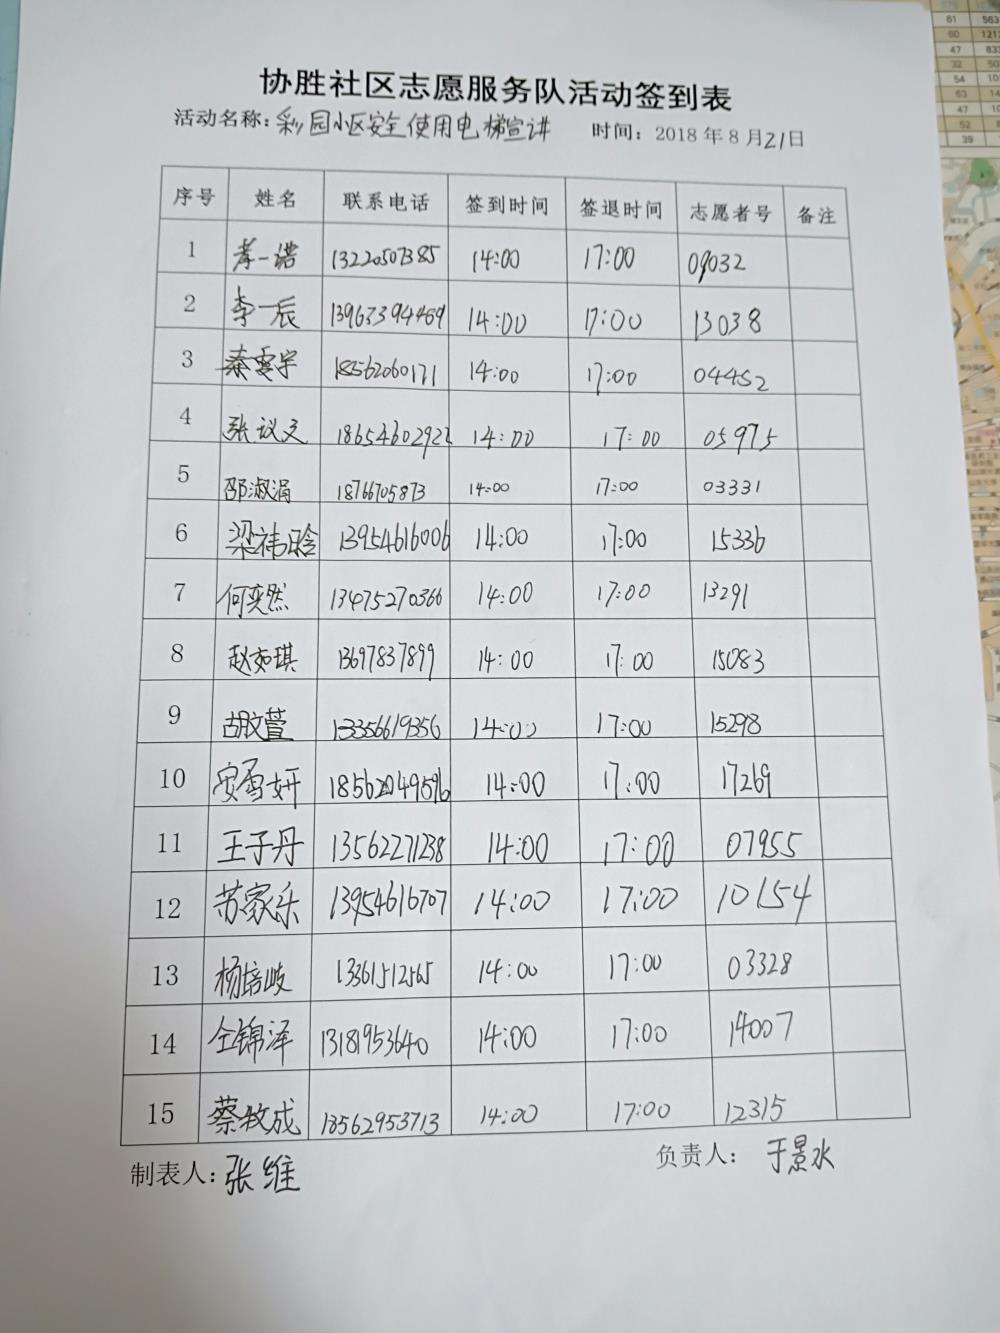 协胜社区志愿服务队活动签到表
活动名称：彩园小区安全使用电梯宣讲 时间：2018年8月21日
序号 姓名 联系电话 签到时间 签退时间 志愿者号 备注
1 一诺 13220507385 14:00 17:00 09032
2 李一辰 13963394469 14:00 17:00 13038
3 秦雯宇 18562060171 14:00 17:00 04452
4 张议文 18654602922 14:00 17:00 05975
5 邵淑涓 18766705873 14:00 17:00 03331
6 梁祎晗 13954616006 14:00 17:00 15336
7 何奕然 13475270366 14:00 17:00 13291
8 赵如琪 13697837899 14:00 17:00 15083
9 胡文萱 13356619356 14:00 17:00 15298
10 安雪妍 18562049596 14:00 17:00 17269
11 王子丹 13562271238 14:00 17:00 07955
12 苏家乐 13954616707 14:00 17:00 10154
13 杨培岐 13361512565 14:00 17:00 03328
14 仝锦泽 13181953640 14:00 17:00 14007
15 蔡牧成 18562953713 14:00 17:00 12315
制表人：张维 负责人：于景水
61 563
60 121
47 833
32 50
54 10
63 14
47 10
52
39